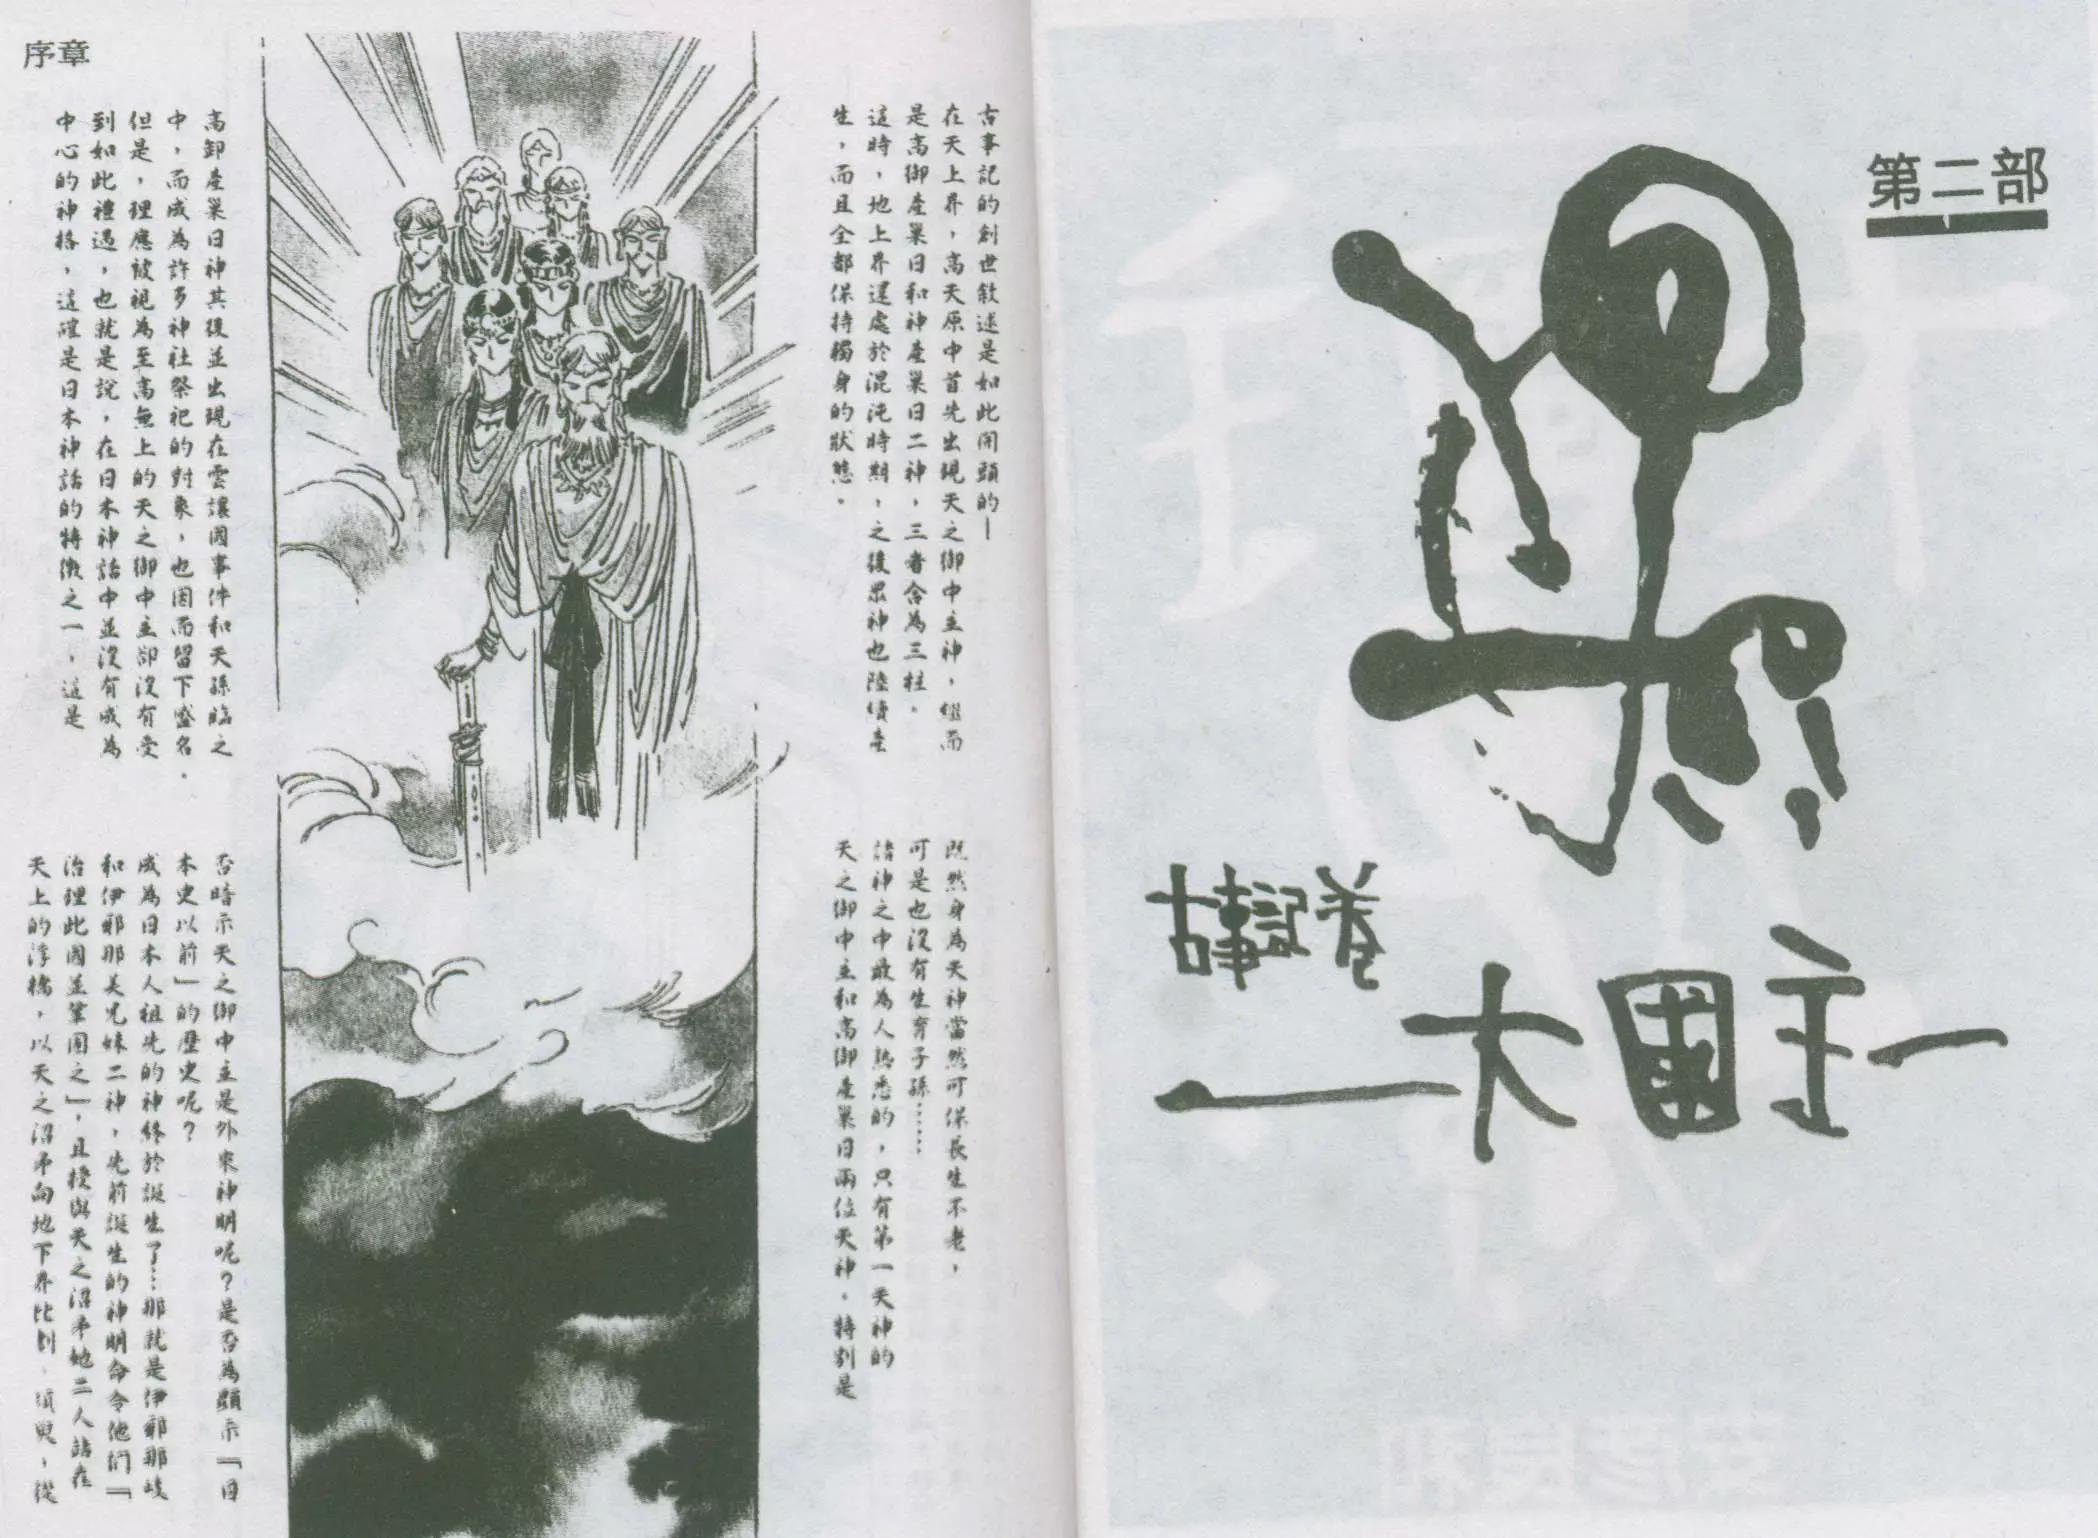 第二部
古事記巻
大國主
序章
古事記的創世敘述是如此開頭的—
在天上界，高天原中首先出現天之御中主神，繼而
是高御產巢日和神產巢日二神，三者合為三柱。
這時，地上界還處於混沌時期，之後眾神也陸續產
生，而且全都保持獨身的狀態。
既然身為天神當然可保長生不老，
可是也沒有生育子孫……
諸神之中最為人熟悉的，只有第一天神的
天之御中主和高御產巢日兩位天神。特別是
高卸產巢日神其後並出現在雲讓國事件和天孫臨之
中，而成為許多神社祭祀的對象，也因而留下盛名。
但是，理應被視為至高無上的天之御中主卻沒有受
到如此禮遇，也就是說，在日本神話中並沒有成為
中心的神格，這確是日本神話的特徵之一，這是
否暗示天之御中主是外來神明呢？是否為顯示『日
本史以前』的歷史呢？
成為日本人祖先的神終於誕生了…那就是伊邪那岐
和伊邪那美兄妹二神，先前誕生的神明命令他們『
治理此國並鞏固之』，且授與天之沼矛她二人站在
天上的浮橋，以天之沼矛向地下界比劃，須臾，從